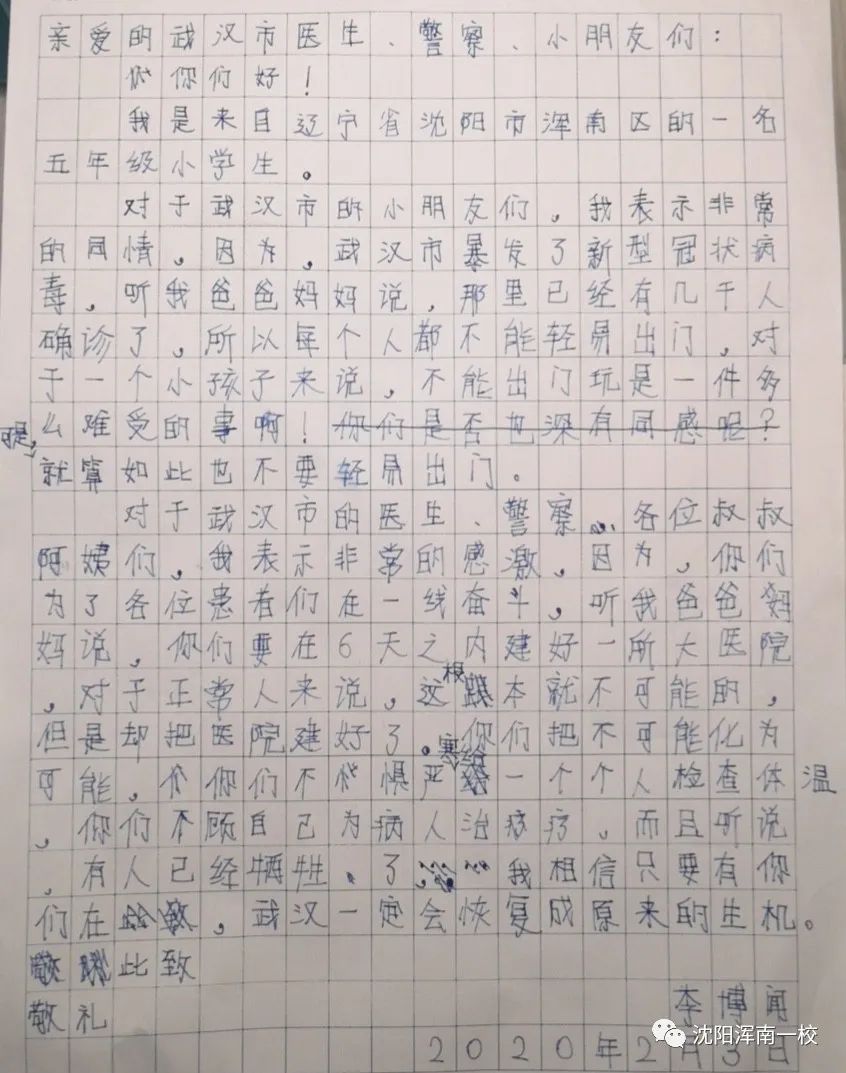 亲爱的武汉市医生、警察、小朋友们：
你们好！
我是来自辽宁省沈阳市浑南区的一名
五年级小学生。
对于武汉市的小朋友们，我表示非常
的同情，因为，武汉市暴发了新型冠状病
毒，听我爸爸妈妈说，那里已经有几千人
确诊了，所以每个人都不能轻易出门，对
于一个小孩子来说，不能出门玩是一件多
么难受的事啊！你们是否也深有同感呢？
可是，就算如此也不要轻易出门。
对于武汉市的医生、警察……各位叔叔
阿姨们，我表示非常的感激，因为，你们
为了各位患者们在一线奋斗，听我爸爸妈
妈说，你们要在6天之内建好一所大医院
，对于正常人来说，这根本就不可能的，
但是却把医院建好了。你们把不可能化为
可能，你们不惧严寒给一个个人检查体温
，你们不顾自己为病人治疗，而且听说
，有人已经牺牲了……我相信只要有你
们在，武汉一定会恢复成原来的生机。
此致
敬礼
李博闻
2020年2月3日
沈阳浑南一校